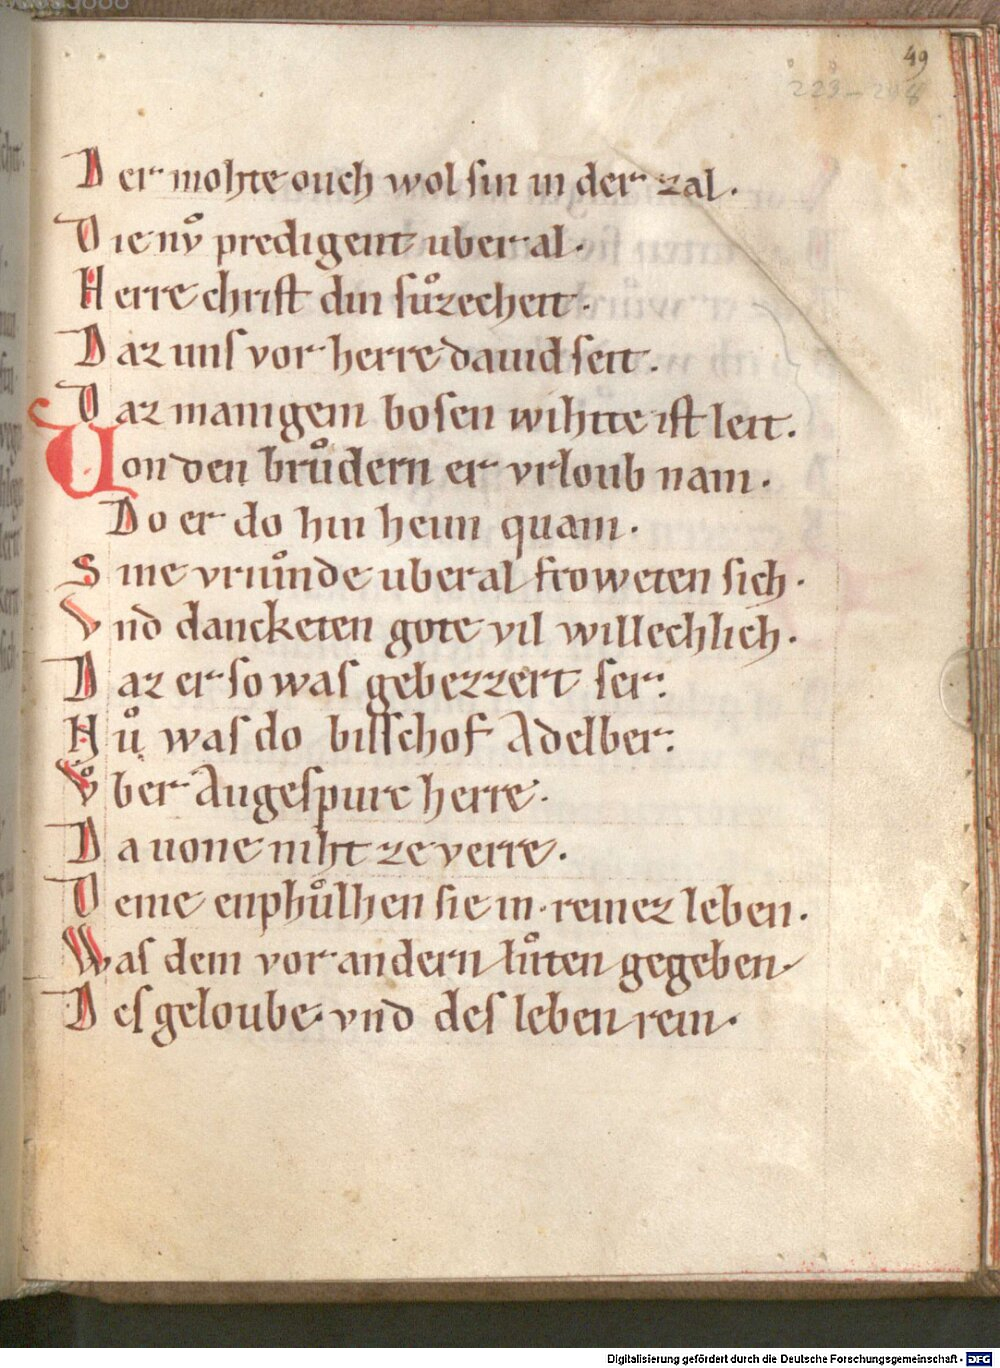 49
223-248
Der mohte ouch wol sin in der zal.
Die nv̊ predigent uber al.
Herre christ din sůzecheit.
Daz uns vor herre dauid seit.
Daz manigem bosen wihtte ist leit.
Uon den brůdern er vrloub nam.
Do er do hin heim quam.
Sine vriůnde uber al froweten sich.
Vnd dancketen gote vil willechlich.
Daz er so was gebezzert ser.
Hů was do bisschof Adelber.
V̊ber Augespurc herre.
Da uone niht ze verre.
Deme enphůlhen sie in. reinez leben.
Was dem vor andern lůten gegeben.
Des geloube vnd des leben rein.
Digitalisierung gefördert durch die Deutsche Forschungsgemeinschaft - DFG